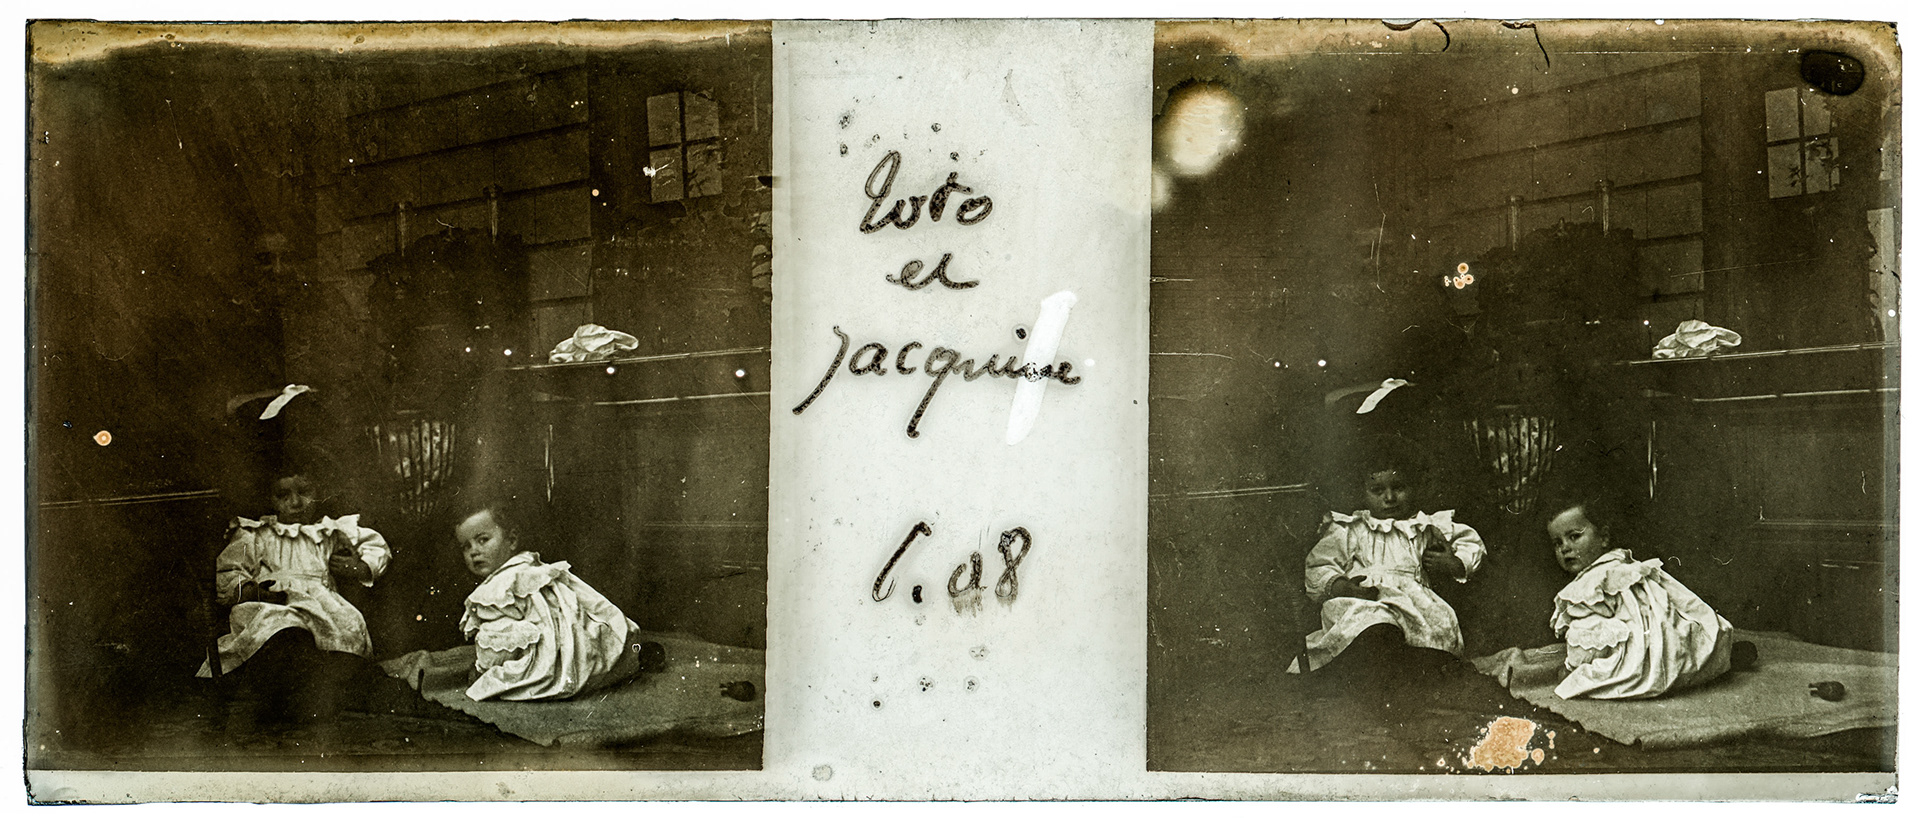 Loto
et
Jacquine
6.08